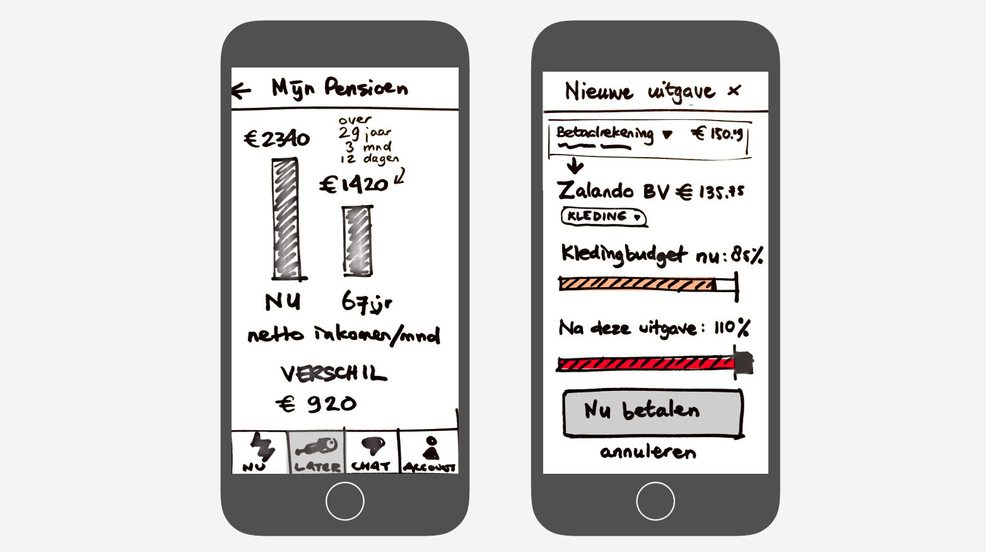 ← Mijn Pensioen
€2340
over
29 jaar
3 mnd
12 dagen
€1420
NU
67jr
netto inkomen/mnd
VERSCHIL
€ 920
NU
LATER
CHAT
ACCOUNT
Nieuwe uitgave ×
Betaalrekening ▼ € 150.19
Zalando BV € 135.75
KLEDING ▼
Kledingbudget nu: 85%
Na deze uitgave: 110%
Nu betalen
annuleren